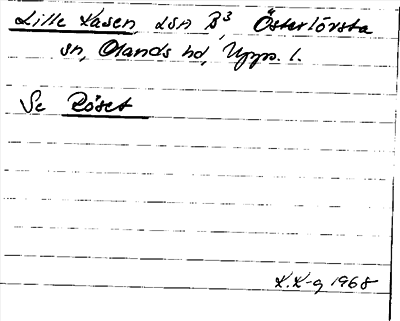 Lille Kasen, LSA B³, Österlövsta
sn, Olands hd, Upps. l.
Se Röset
K.K-g 1968